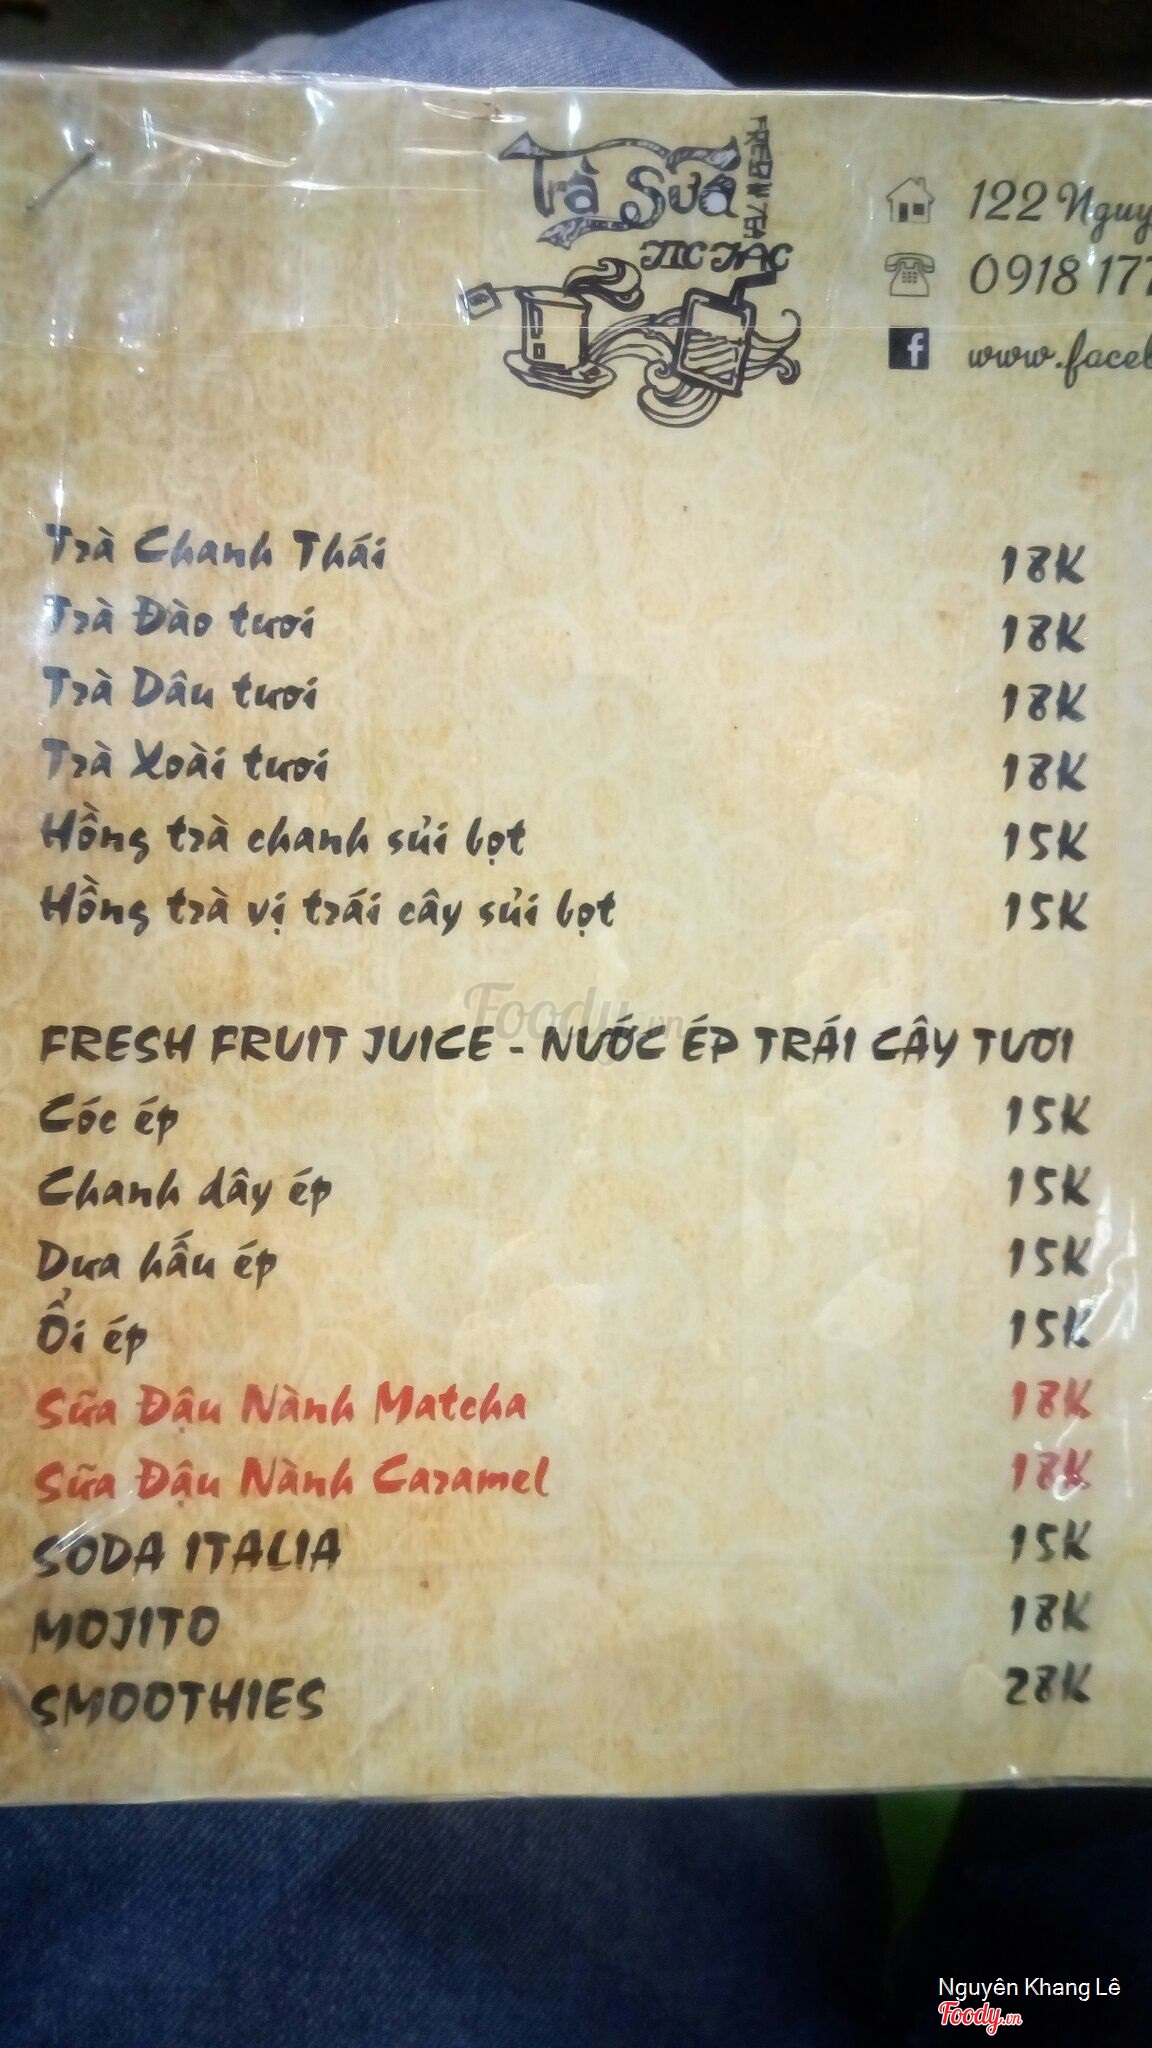 Trà Sữa
FRESH TEA
TIC TAC
122 Nguy
0918 177
www.faceb
Trà Chanh Thái 18K
Trà Đào tươi 18K
Trà Dâu tươi 18K
Trà Xoài tươi 18K
Hồng trà chanh sủi bọt 15K
Hồng trà vị trái cây sủi bọt 15K
Foody.vn
FRESH FRUIT JUICE - NƯỚC ÉP TRÁI CÂY TƯƠI
Cóc ép 15K
Chanh dây ép 15K
Dưa hấu ép 15K
Ổi ép 15K
Sữa Đậu Nành Matcha 18K
Sữa Đậu Nành Caramel 18K
SODA ITALIA 15K
MOJITO 18K
SMOOTHIES 28K
Nguyên Khang Lê
Foody.vn